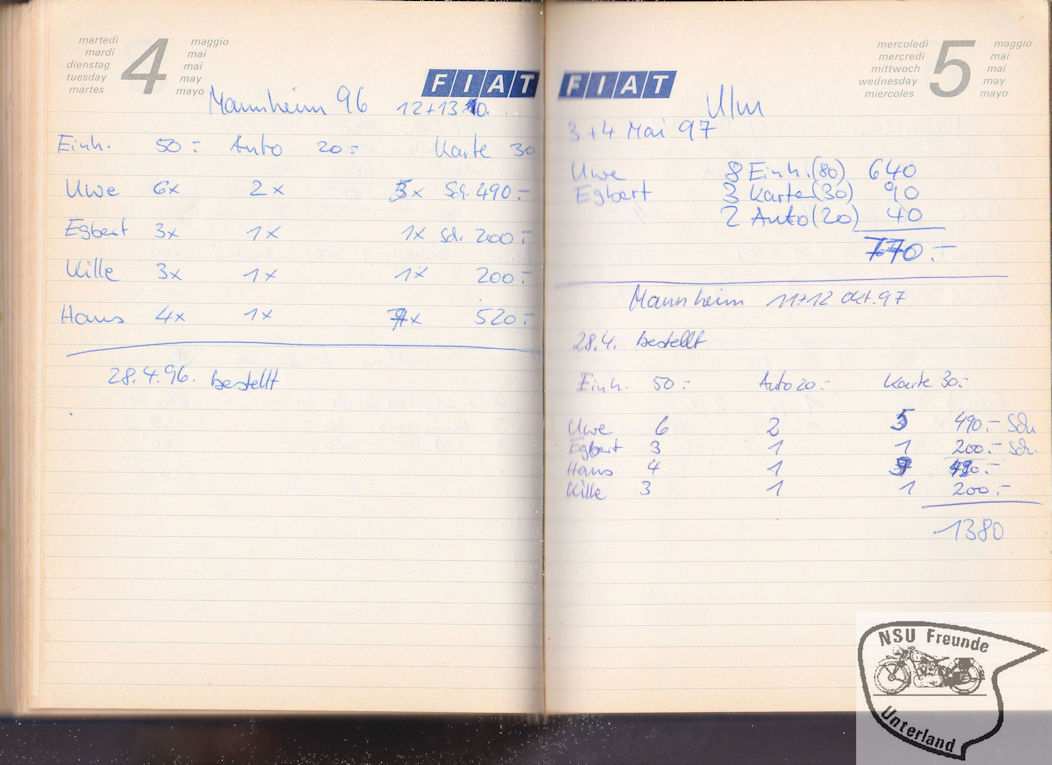 martedì
mardi
dienstag
tuesday
martes
4
maggio
mai
mai
may
mayo
FIAT
Mannheim 96 12+13.10.
Einh. 50:- Auto 20:- Karte 30
Uwe 6x 2x 5x Sch. 490.-
Egbert 3x 1x 1x Sch. 200.-
Kille 3x 1x 1x 200.-
Hans 4x 1x 520.-
28.4.96. bestellt
mercoledì
mercredi
mittwoch
wednesday
miercoles
5
maggio
mai
mai
may
mayo
FIAT
Ulm
3+4 Mai 97
Uwe 8 Einh.(80) 640
Egbert 3 Karten(30) 90
2 Auto(20) 40
770.-
Mannheim 11+12 Okt.97
28.4. bestellt
Einh. 50:- Auto 20:- Karte 30:-
Uwe 6 2 5 490.- Sch.
Egbert 3 1 1 200.- Sch.
Hans 4 1 9 490.-
Kille 3 1 1 200.-
1380
NSU Freunde
Unterland